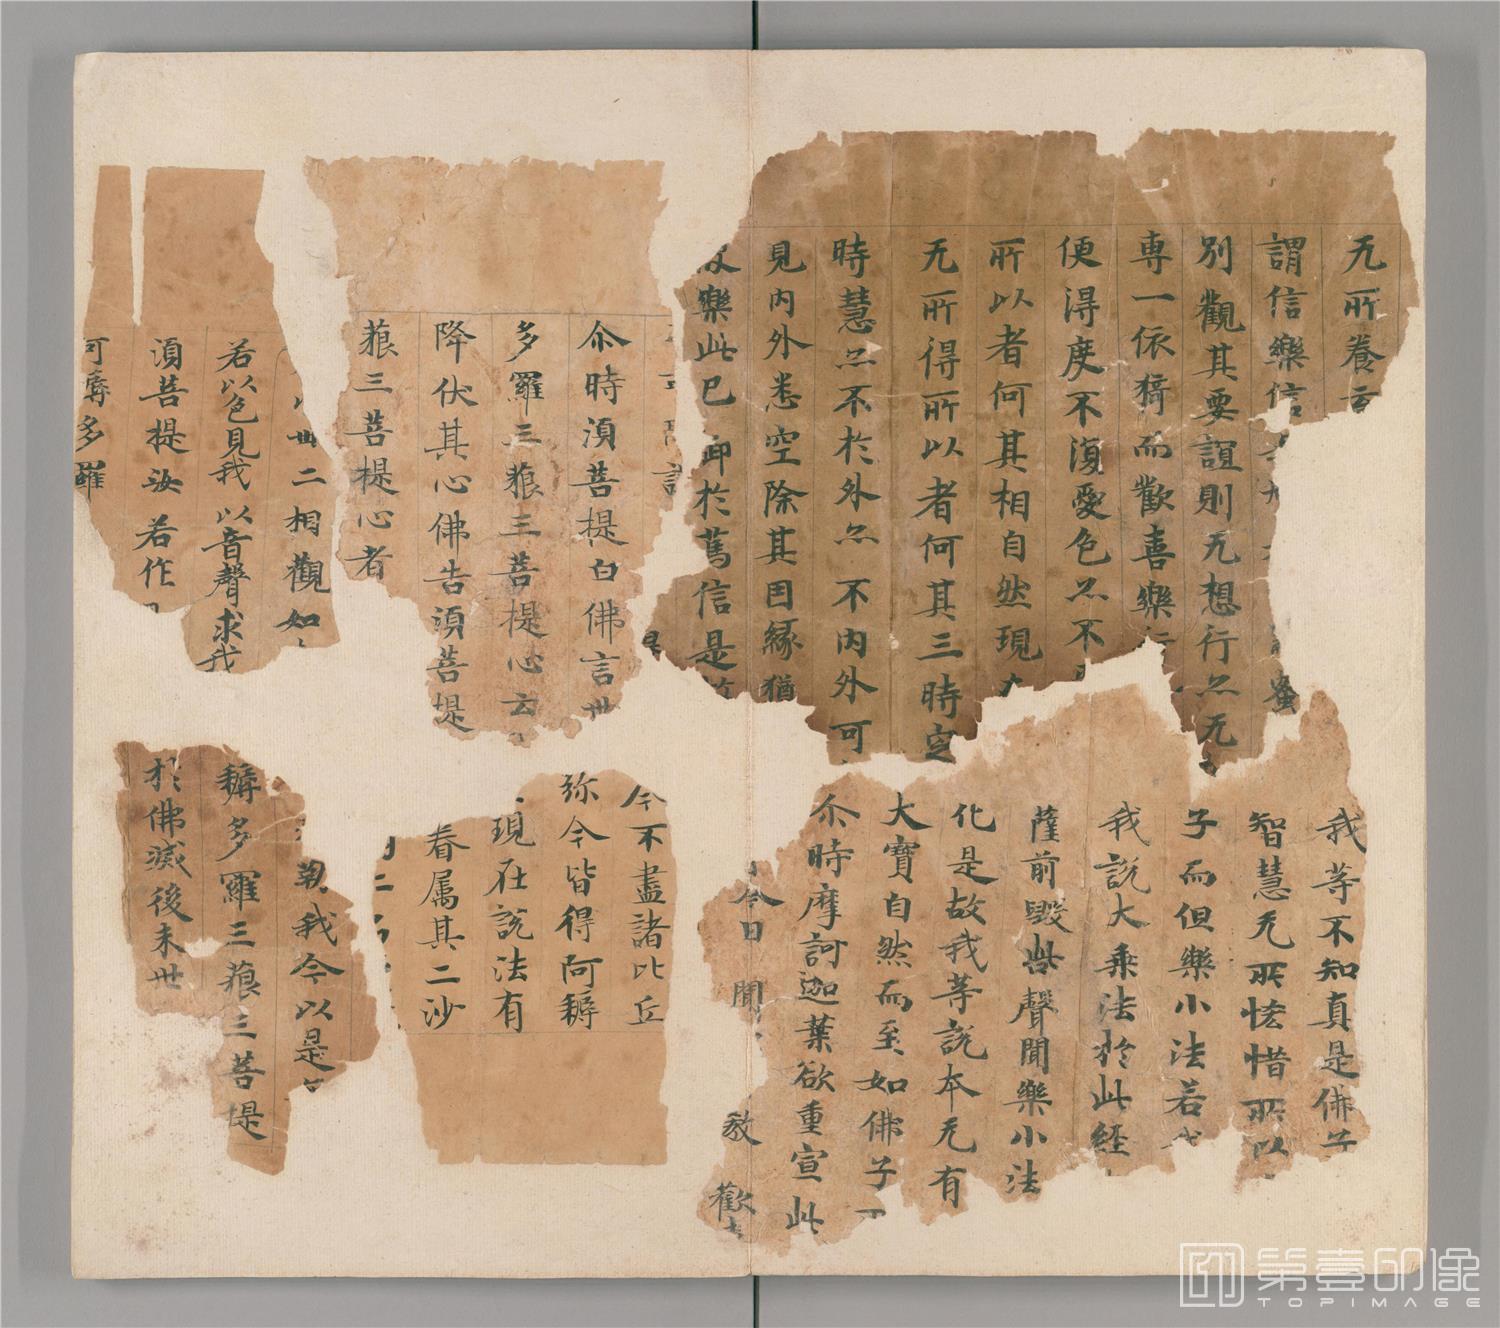 无所養云
謂信樂信
蜜
別觀其要誼則无想行亦无
専一依猗而歡喜樂
便得度不復愛色亦不
所以者何其相自然現
无所得所以者何其三時空
時慧亦不於外亦不內外可
見內外悉空除其因緣猶
樂此已即於篤信是
我等不知真是佛子
智慧无所悋惜所以
子而但樂小法若我
我說大乘法於此經
薩前毀呰聲聞樂小法
化是故我等說本无有
大寶自然而至如佛子
尒時摩訶迦葉欲重宣此
今日聞
教
歡
尒時湏菩提白佛言世
多羅三藐三菩提心云
降伏其心佛告湏菩提
藐三菩提心者
卌二相觀如
若以色見我以音聲求我
湏菩提汝若作
阿耨多羅
今不盡諸比丘
弥今皆得阿耨
現在說法有
眷属其二沙
我今以是
耨多羅三藐三菩提
於佛滅後末世
第壹印像
TOPIMAGE